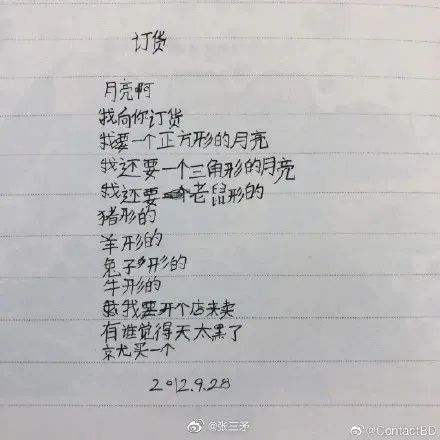 订货
月亮啊
我向你订货
我要一个正方形的月亮
我还要一个三角形的月亮
我还要老鼠形的
猪形的
羊形的
兔子形的
牛形的
我要开个店来卖
有谁觉得天太黑了
京尤买一个
2012.9.28
@张三矛
@ContactBD